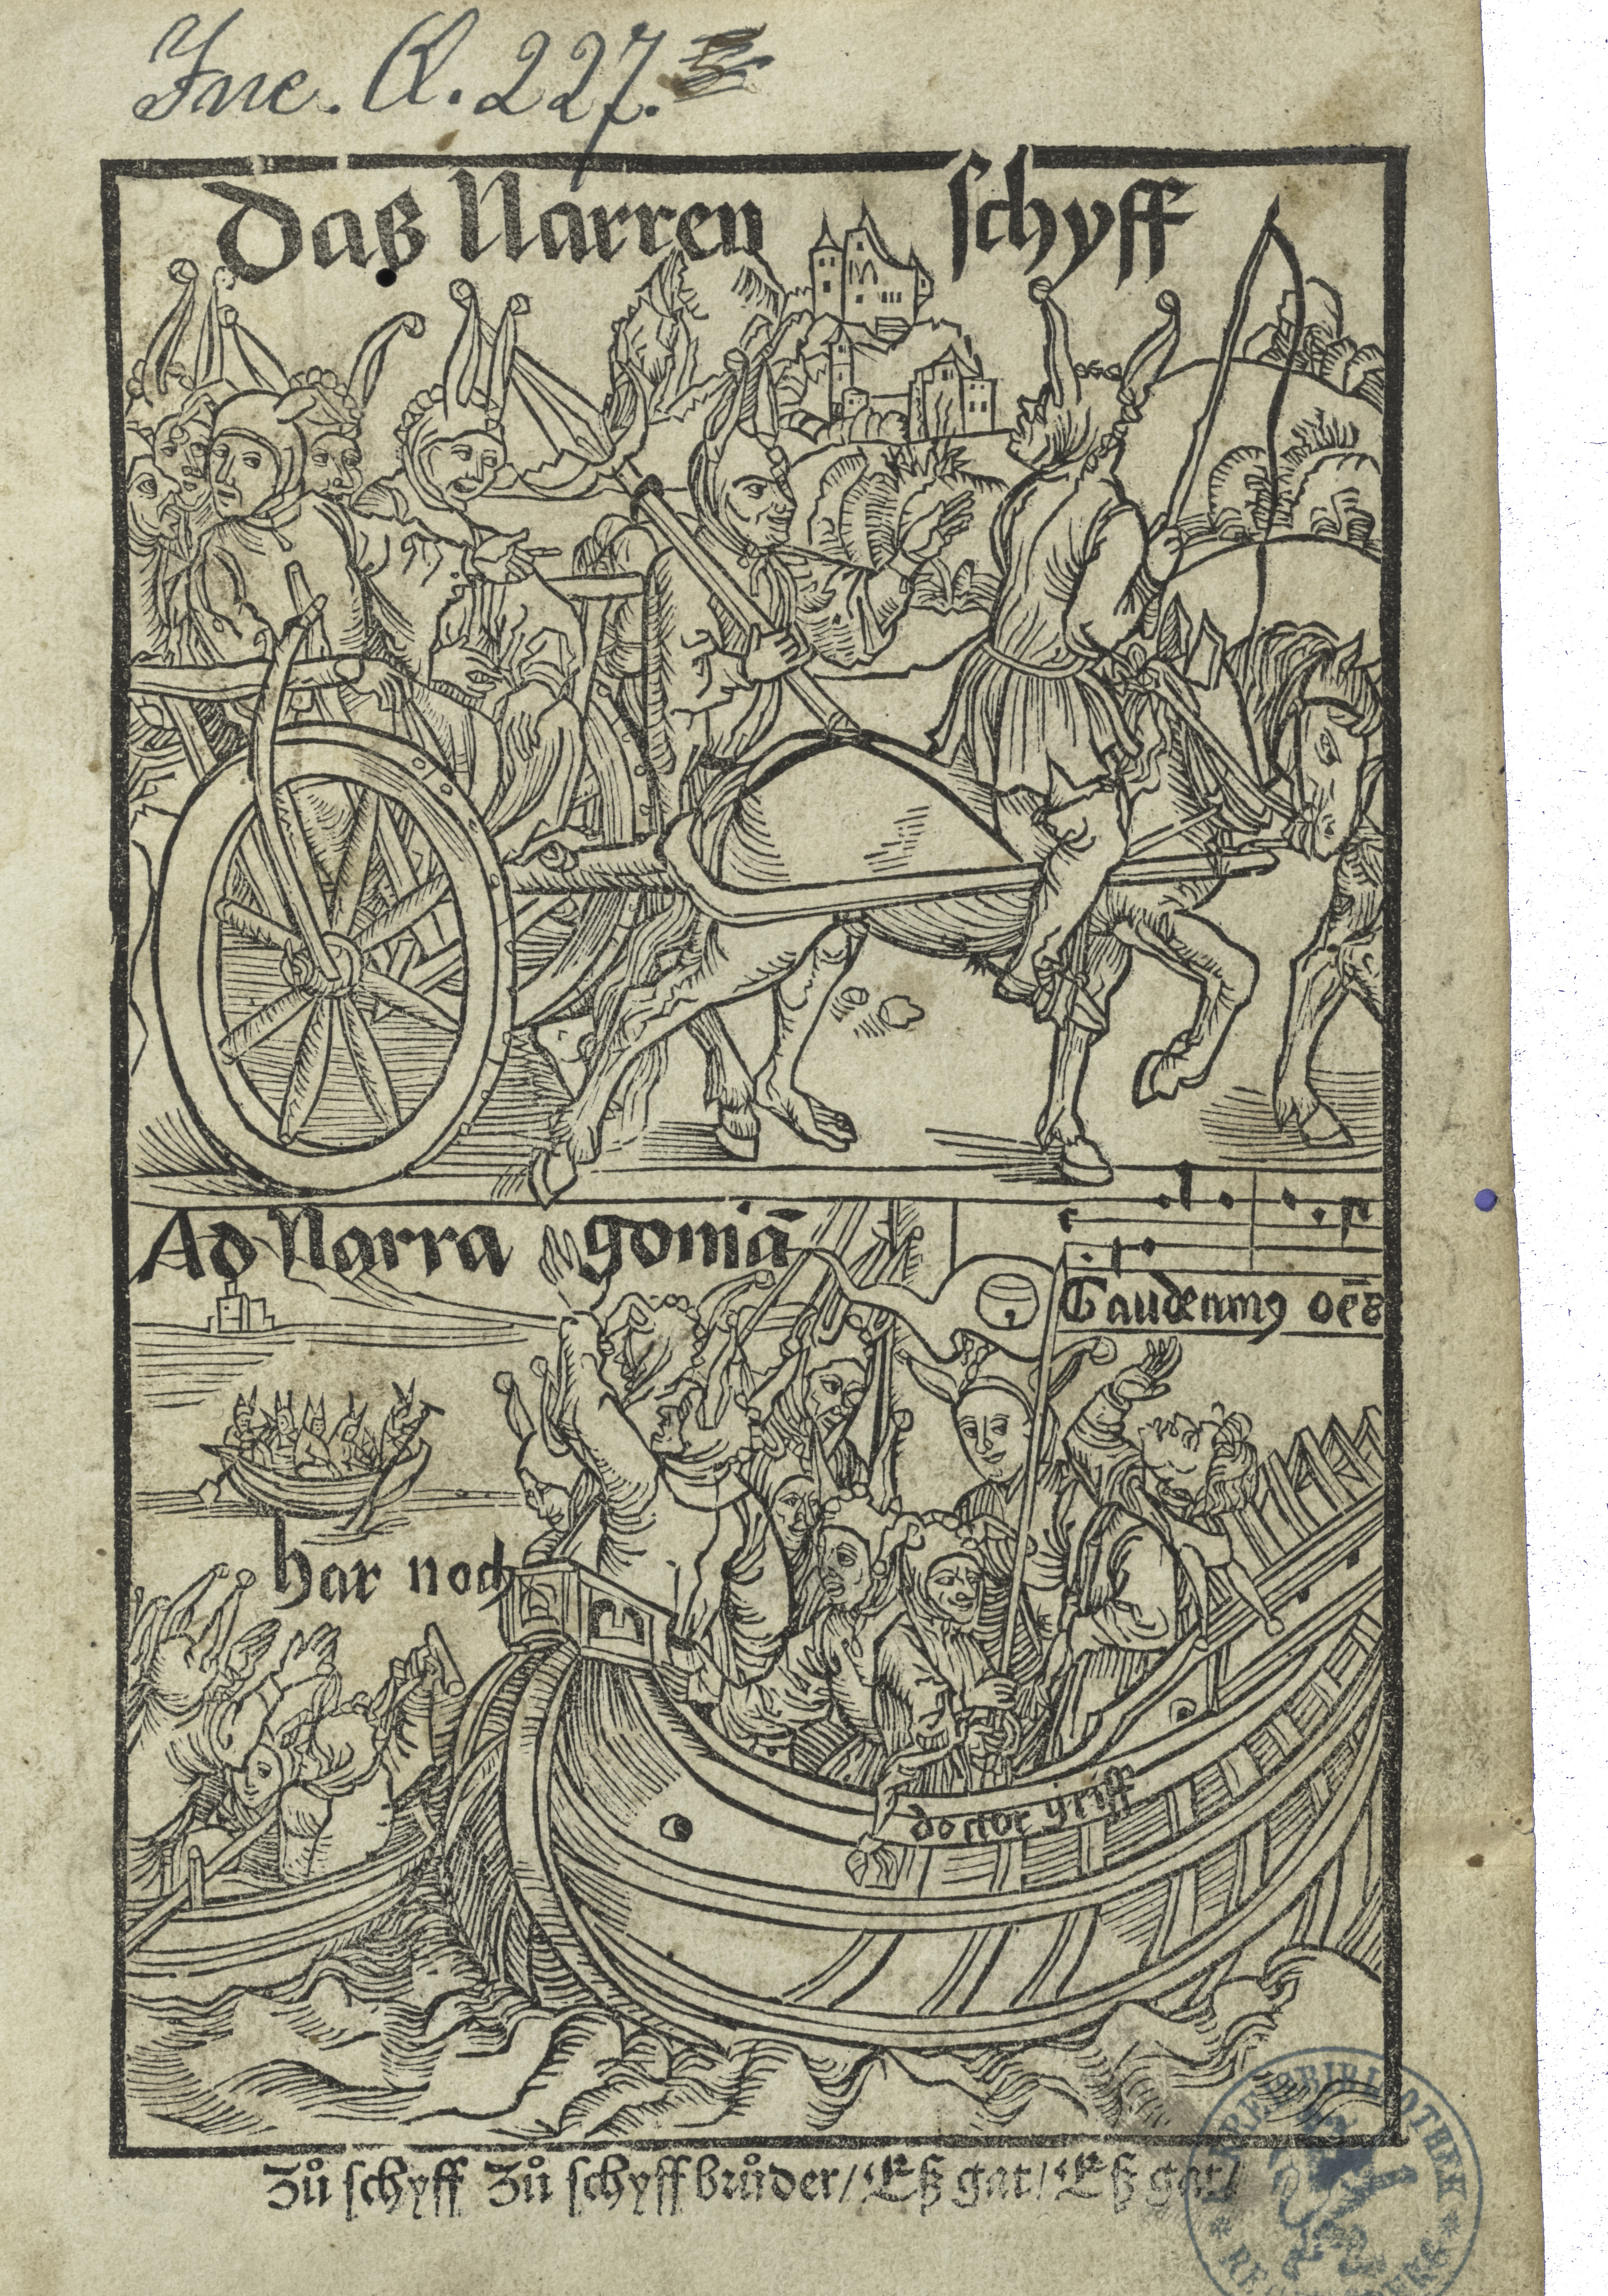 Inc. R. 227.
Daß Narren schyff
Ad Narra goniā
Gaudeamꝯ oēs
har noch
doctor griff
Zů schyff Zů schyff brůder/ Eß gat/ Eß gat/
KREISBIBLIOTHEK * REGENSBURG *